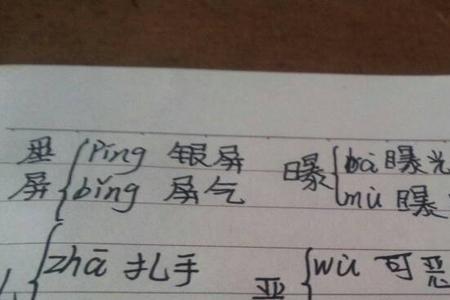 屏 { píng 银屏
bǐng 屏气
曝 { bà 曝光
mù 曝
zhā 扎手
wù 可恶